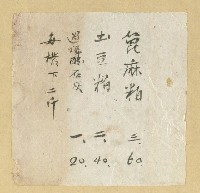 萞麻粕 三.60.
土豆粕 六.40.
過磷酸石灰 一.20.
每擔下二斤